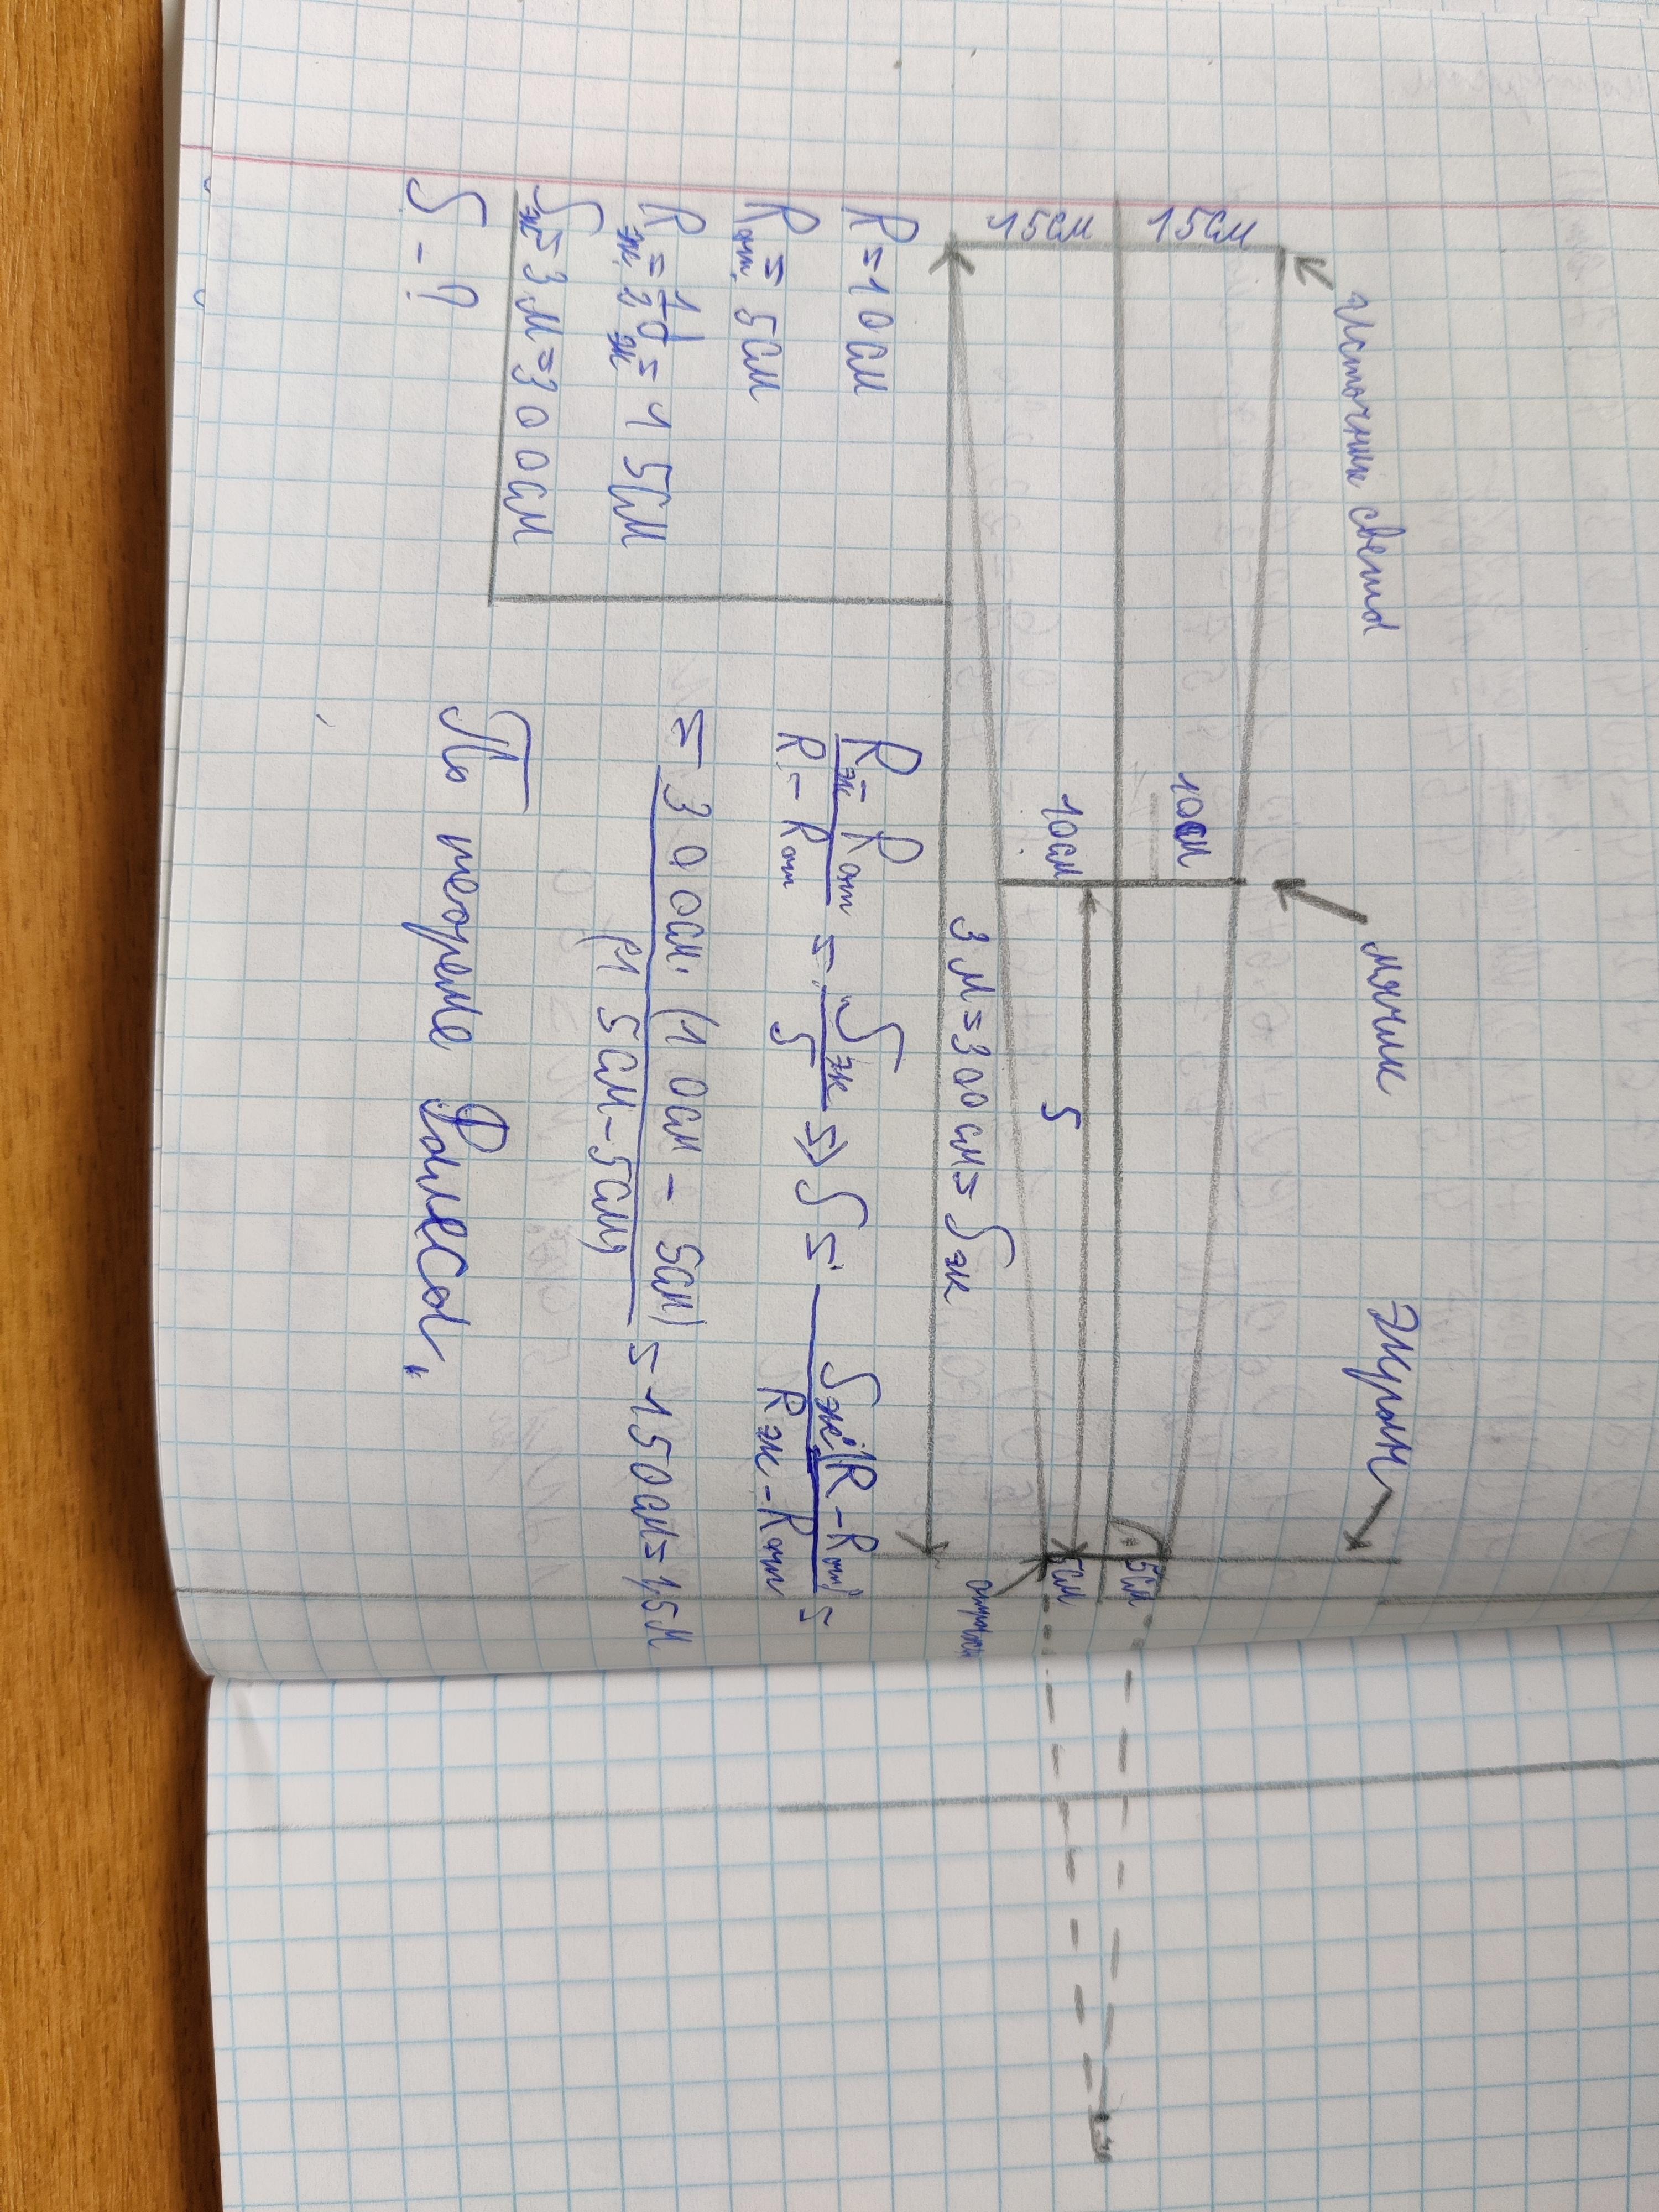 источник света
мячик
Экран
15см
15см
10см
10см
S
5см
5см
3м=300см=Sэк
R=10см
Rот.=5см
Rэк.=1/2dэк.=15см
Sэк=3м=300см
S-?
(Rэк-Rот)/(R-Rот)=Sэк/S=>S=Sэк·(R-Rот)/(Rэк-Rот)=
=300см·(10см-5см)/(15см-5см)=150см=1,5м
По теореме Фалеса,